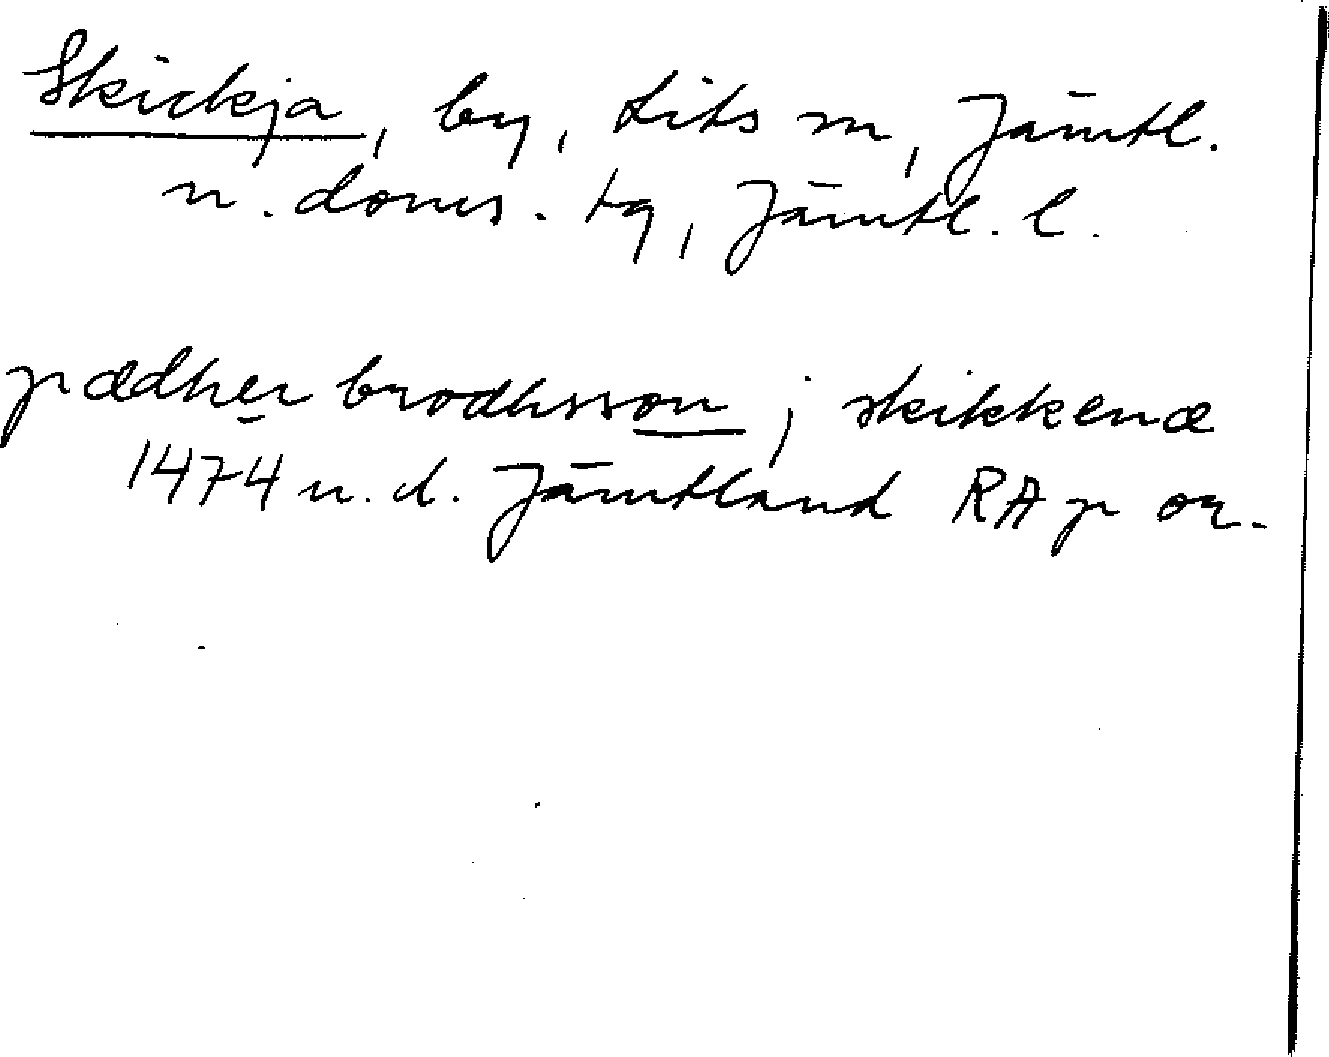 Skickja, by, Lits sn, Jämtl.
n. doms. tg, Jämtl. l.
pædher brodhsson j skikkenæ
1474 u. d. Jämtland RAp or.